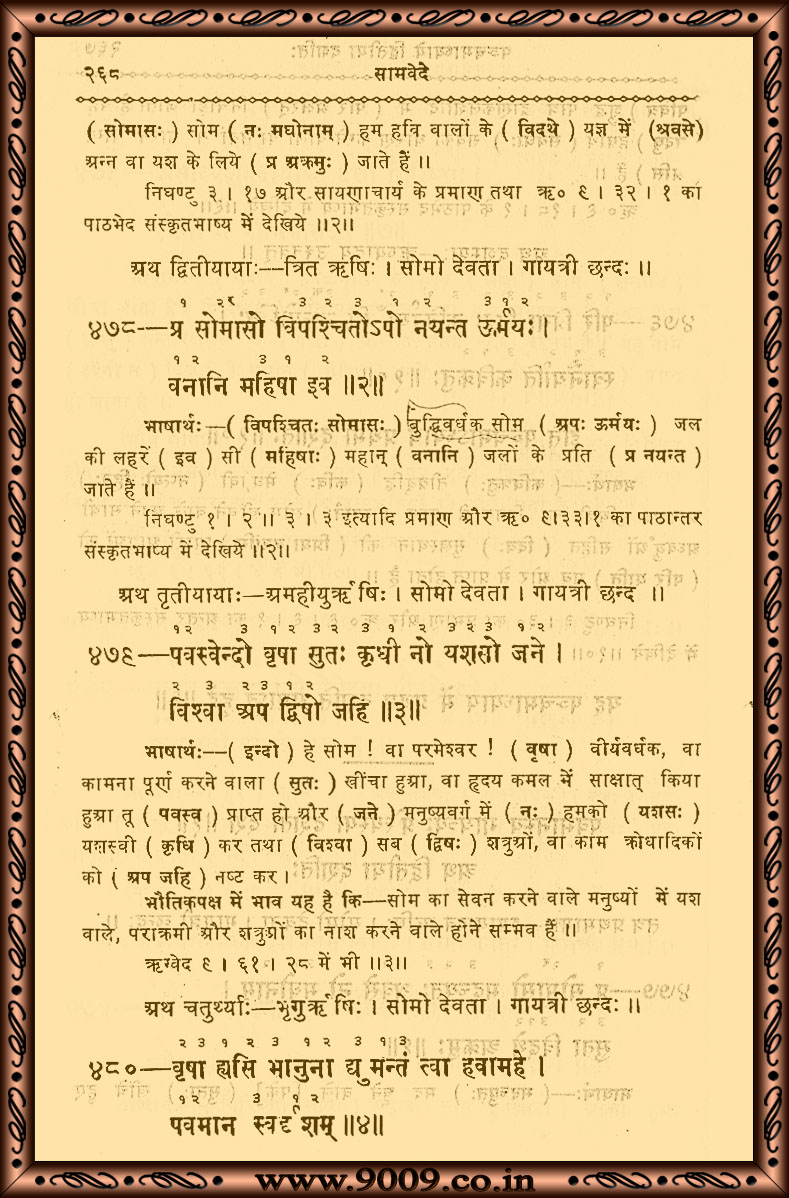 २६८ सामवेदे
( सोमासः ) सोम ( नः मघोनाम् ) हम हवि वालों के ( विदथे ) यज्ञ में (श्रवसे)
अन्न वा यश के लिये ( प्र अक्रमुः ) जाते हैं ।।
निघण्टु ३ । १७ और सायणाचार्य के प्रमाण तथा ऋ० ९ । ३२ । १ का
पाठभेद संस्कृतभाष्य में देखिये ।।२।।
अथ द्वितीयायाः—त्रित ऋषिः । सोमो देवता । गायत्री छन्दः ।।
१ २र ३ २ ३ १ २ ३ १ २
४७८-—प्र सोमासो विपश्चितोऽपो नयन्त ऊर्मयः ।
१ २ ३ १ २
वनानि महिषा इव ।।२।।
भाषार्थः—( विपश्चितः सोमासः ) बुद्धिवर्धक सोम ( अपः ऊर्मयः ) जल
की लहरें ( इव ) सी ( महिषाः ) महान् ( वनानि ) जलों के प्रति ( प्र नयन्त )
जाते हैं ।।
निघण्टु १ । २ ।। ३ । ३ इत्यादि प्रमाण और ऋ० ९।३३।१ का पाठान्तर
संस्कृतभाष्य में देखिये ।।२।।
अथ तृतीयायाः—अमहीयुर्ऋषिः । सोमो देवता । गायत्री छन्द ।।
१ २ ३ १ २ ३ २ ३ १ २ ३ २ ३ १ २
४७९—पवस्वेन्दो वृषा सुतः कृधी नो यशसो जने ।
२ ३ २ ३ १ २
विश्वा अप द्विषो जहि ।।३।।
भाषार्थः—( इन्दो ) हे सोम ! वा परमेश्वर ! ( वृषा ) वीर्यवर्धक, वा
कामना पूर्ण करने वाला ( सुतः ) खींचा हुआ, वा हृदय कमल में साक्षात् किया
हुआ तू ( पवस्व ) प्राप्त हो और ( जने ) मनुष्यवर्ग में ( नः ) हमको ( यशसः )
यशस्वी ( कृधि ) कर तथा ( विश्वा ) सब ( द्विषः ) शत्रुओं, वा काम क्रोधादिकों
को ( अप जहि ) नष्ट कर ।
भौतिकपक्ष में भाव यह है कि—सोम का सेवन करने वाले मनुष्यों में यश
वाले, पराक्रमी और शत्रुओं का नाश करने वाले होने सम्भव हैं ।।
ऋग्वेद ९ । ६१ । २८ में भी ।।३।।
अथ चतुर्थ्याः—भृगुर्ऋषिः । सोमो देवता । गायत्री छन्दः ।।
२ ३ १ २ ३ १ २ ३ १ ३
४८०—वृषा ह्यसि भानुना द्युमन्तं त्वा हवामहे ।
१ २ ३ १ २
पवमान स्वर्दृशम् ।।४।।
www.9009.co.in